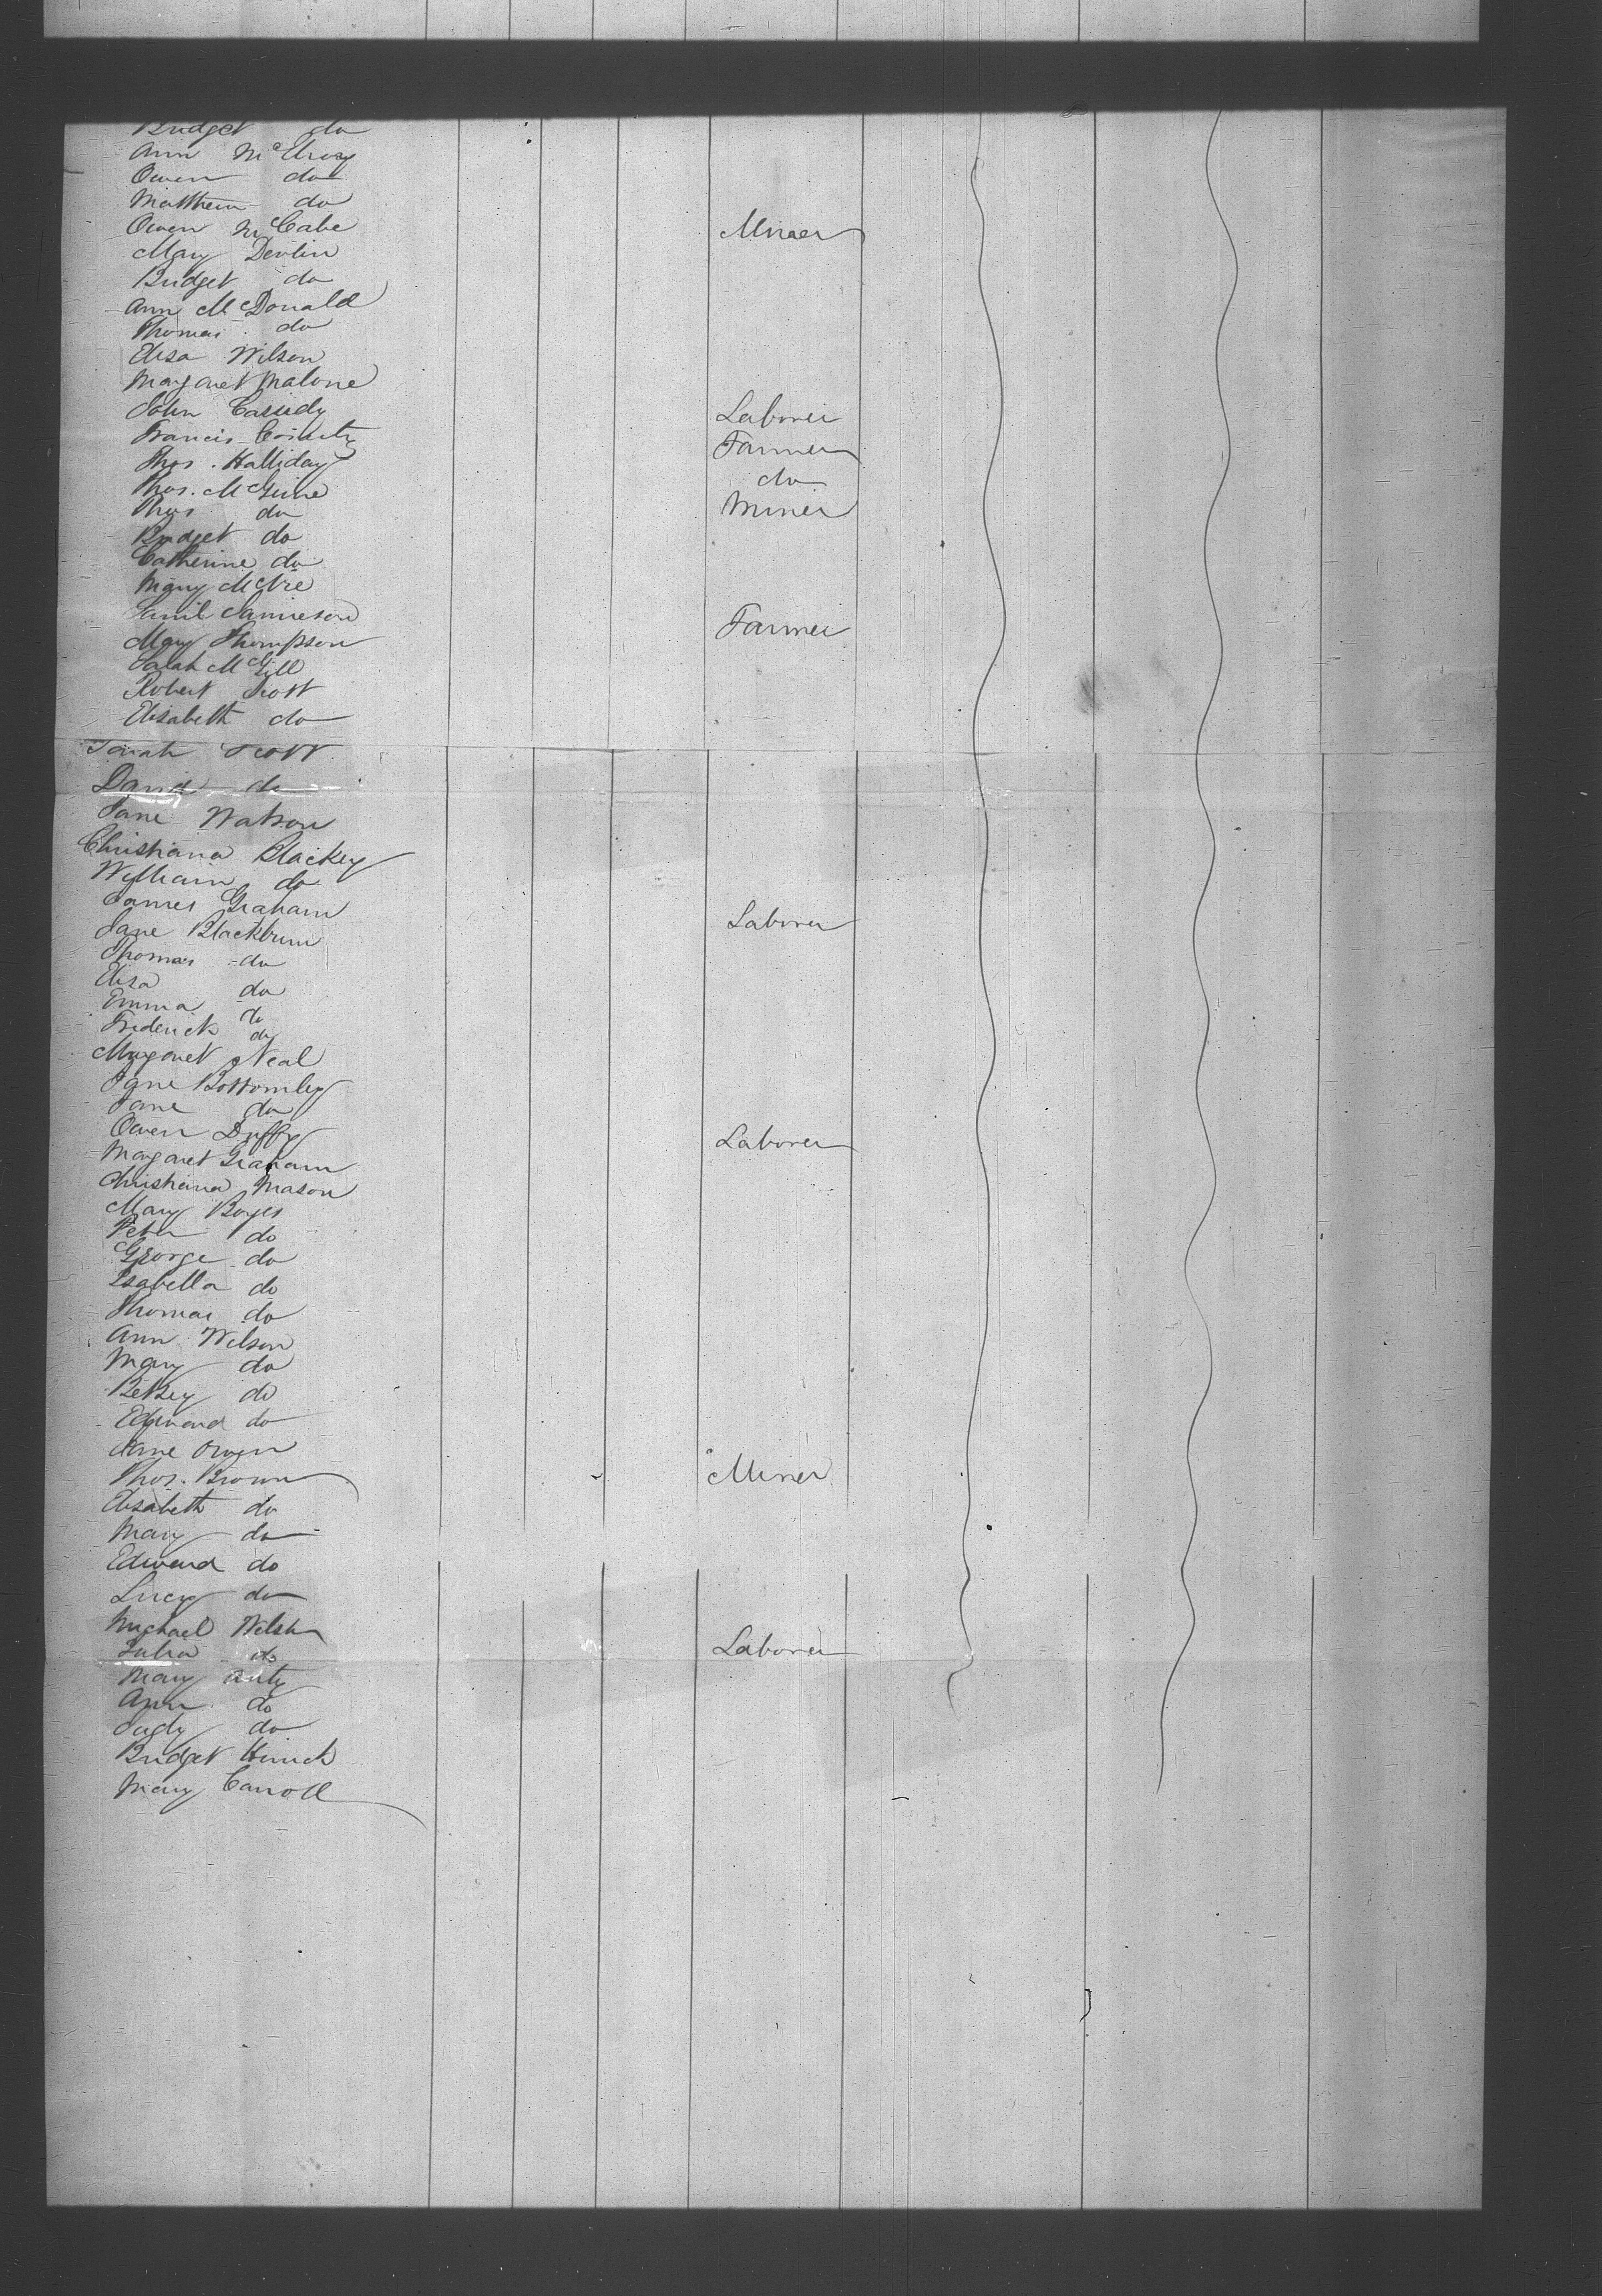 Bridget do
Ann McElroy
Owen do
Matthew do
Owen McCabe Miner
Mary Devlin
Bridget do
Ann McDonald
Thomas do
Elisa Wilson
Margaret Malone
John Cassidy Laborer
Francis Farmer
Thos. Halliday do
Thos. McGuire Miner
Thos do
Bridget do
Catherine do
Mary
Saml Jamieson Farmer
Mary Thompson
Sarah McGill
Robert Scott
Elisabeth do
Sarah Scott
David do
Jane Watson
Christiana Blackey
William do
James Graham Laborer
Jane Blackburn
Thomas do
Elisa do
Emma do
Frederick do
Margaret Neal
Jane Bottomley
Jane do
Owen Duffy Laborer
Margaret Graham
Christiana Mason
Mary Boyes
Peter do
George do
Isabella do
Thomas do
Ann Wilson
Mary do
Betsey do
Edward do
Jane Owen
Thos. Brown Miner
Elisabeth do
Mary do
Edward do
Lucy do
Michael Welsh Laborer
Julia do
Mary
Ann do
Judy do
Bridget
Mary Carroll